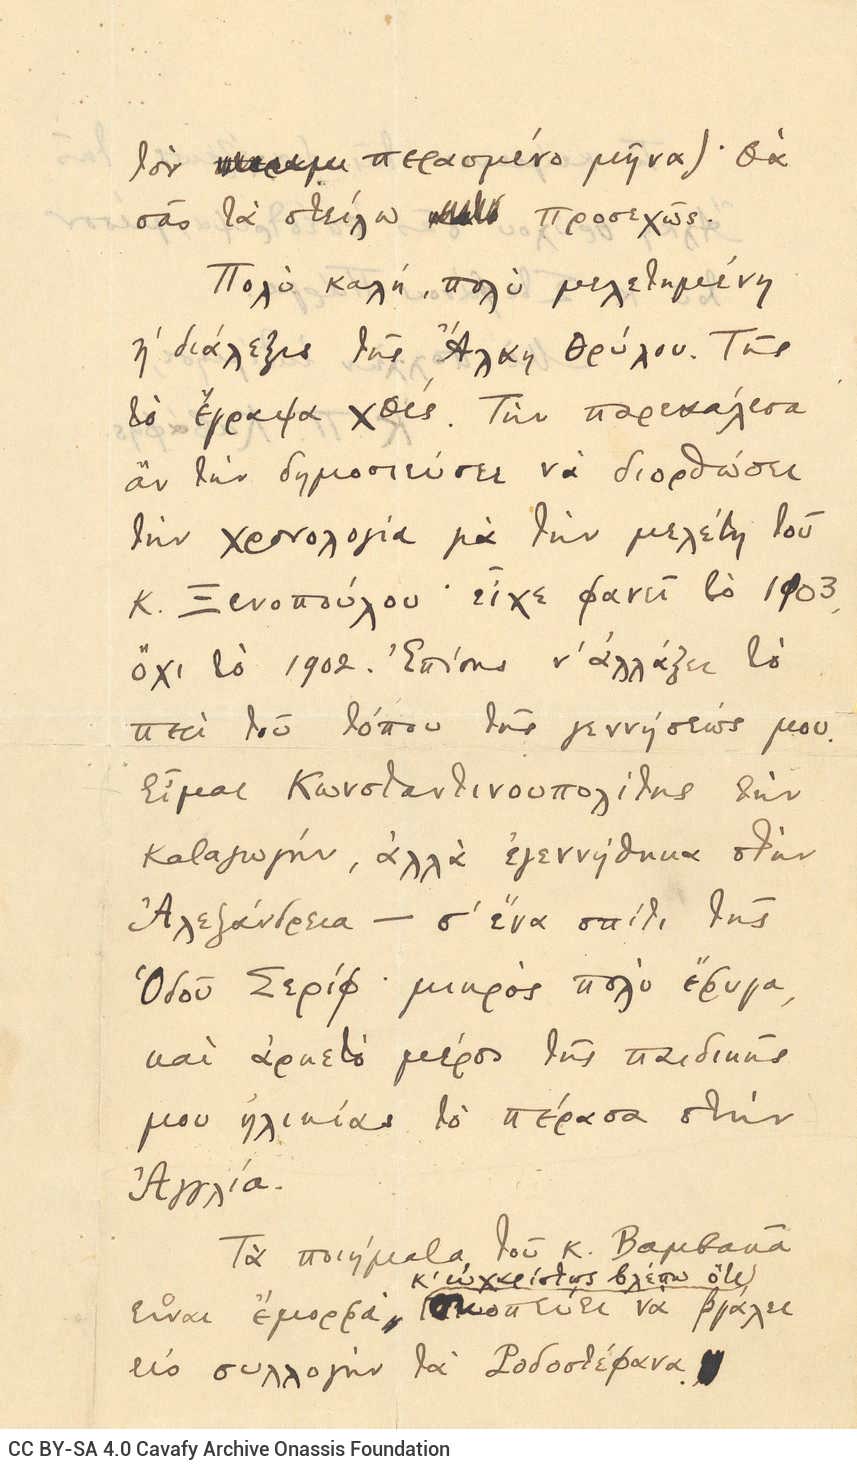 τὸν περασμένο μῆνα)· θὰ
σᾶς τὰ στείλω προσεχῶς.
Πολὺ καλή, πολὺ μελετημένη
ἡ διάλεξις τῆς Ἄλκη Θρύλου. Τῆς
τὸ ἔγραψα χθές. Τὴν παρεκάλεσα
ἂν τὴν δημοσιεύσει νὰ διορθώσει
τὴν χρονολογία γιὰ τὴν μελέτη τοῦ
κ. Ξενοπούλου· εἶχε φανεῖ τὸ 1903,
ὄχι τὸ 1902. Ἐπίσης ν' ἀλλάξει τὸ
περὶ τοῦ τόπου τῆς γεννήσεώς μου.
Εἶμαι Κωνσταντινουπολίτης τὴν
καταγωγήν, ἀλλὰ ἐγεννήθηκα στὴν
Ἀλεξάνδρεια — σ' ἕνα σπίτι τῆς
Ὁδοῦ Σερίφ· μικρὸς πολὺ ἔφυγα,
καὶ ἀρκετὸ μέρος τῆς παιδικῆς
μου ἡλικίας τὸ πέρασα στὴν
Ἀγγλία.
Τὰ ποιήματα τοῦ κ. Βαμβακᾶ
κ' εὐχαρίστως βλέπω ὅτι
εἶναι ἔμορφα, σκοπεύει νὰ βγάλει
εἰς συλλογὴν τὰ Ροδοστέφανα.
CC BY-SA 4.0 Cavafy Archive Onassis Foundation